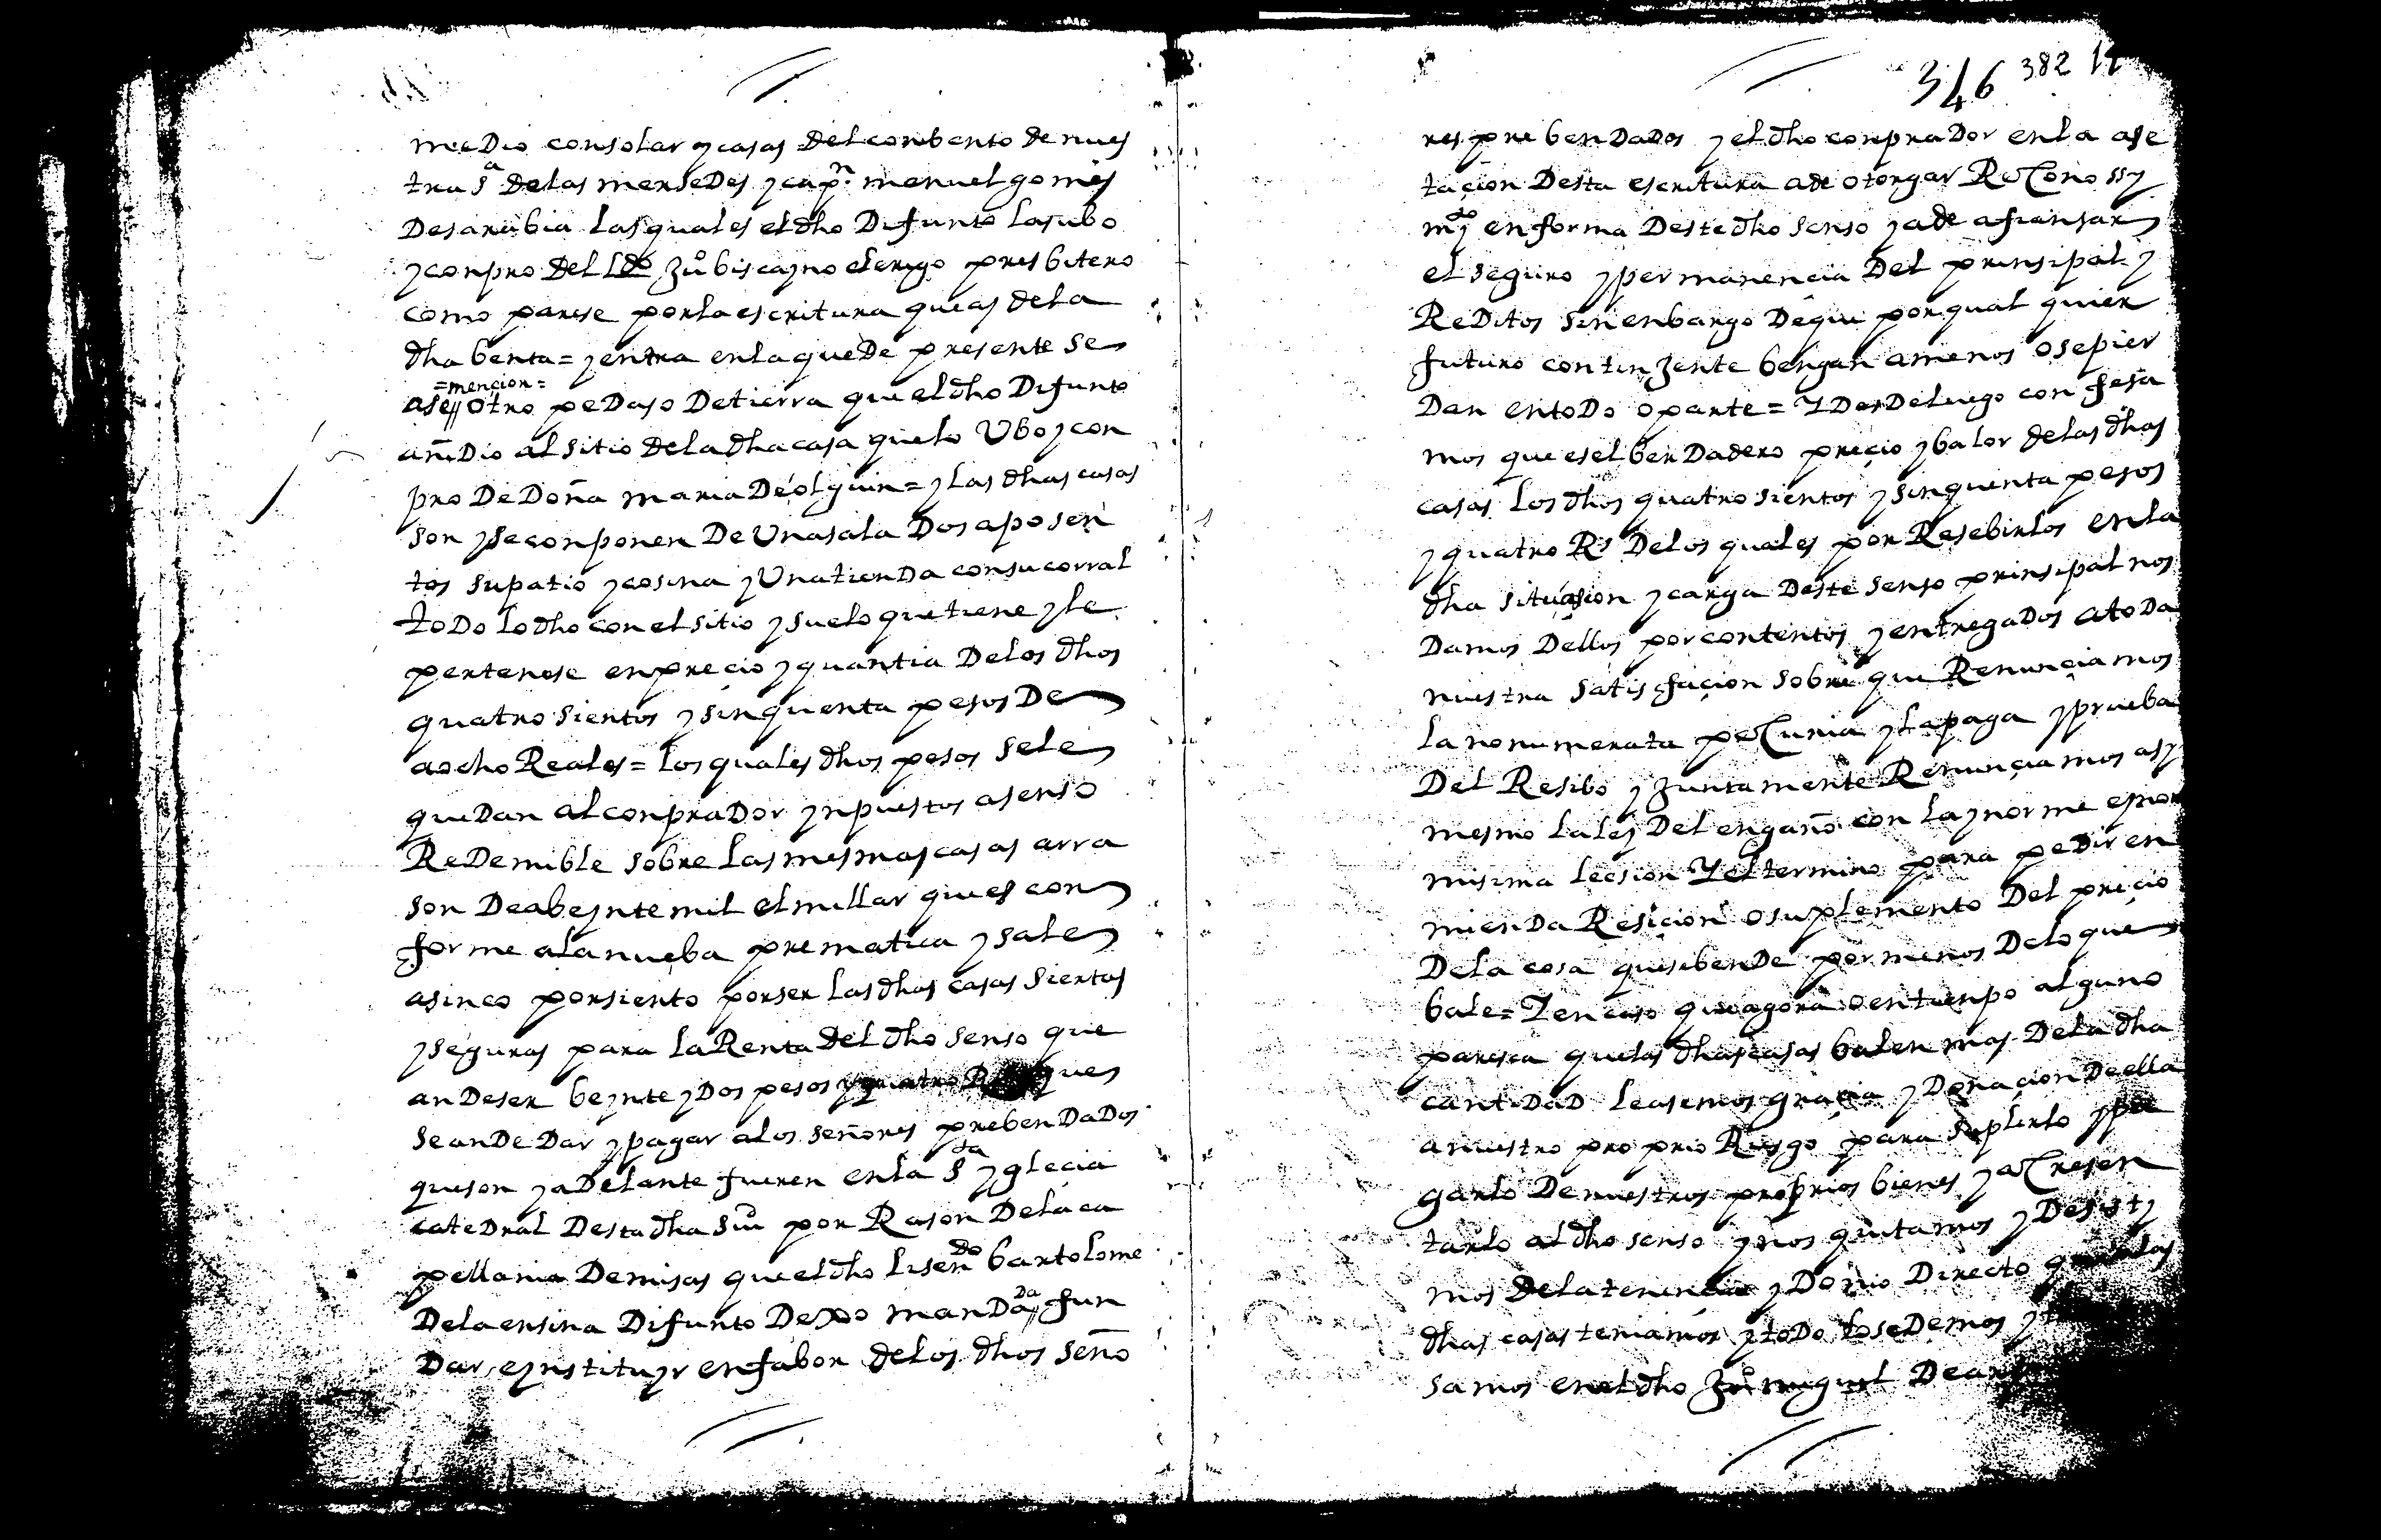 medio con solar y casas del conbento de nues
tra Sª de las mersedes y capn. manuel gomes
de sarabia las quales el dho difunto las ubo
y conpro del Ldo Juº biscayno clerigo presbitero
como parese por la escritura que as de la
dha benta = y entra en la que de presente se
ase =mencion= // otro pedaso de tierra que el dho difunto
añidio al sitio de la dha casa que lo Ubo y con
pro de Doña maria de olguin = y las dhas casas
son y se conponen de Una sala dos aposen
tos su patio y cosina y Una tienda con su corral
todo lo dho con el sitio y suelo que tiene y le
pertenese en precio y quantia de los dhos
quatro sientos y sinquenta pesos de
a ocho Reales = los quales dhos pesos se le
quedan al conprador ynpuestos a senso
Redemible sobre las mesmas casas a rra
son de a beynte mil el millar que es con
forme a la nueba prematica y sale
a sinco por siento por ser las dhas casas siertas
y seguras para la Renta del dho senso que
an de ser beynte y dos pesos y quatro Rs ques
se an de dar y pagar a los señores prebendados
que son y adelante fueren en la Sta yglecia
catedral desta dha siu por Rason de la ca
pellania de misas que el dho lisendo bartolome
de la ensina difunto dexo mandada // fun
dar e ynstituyr en fabor de los dhos seño
346 382 14
res prebendados y el dho conprador en la ase
tacion desta escritura a de otorgar Reconossy
mydo en forma deste dho senso y a de afiansar
el seguro y permanencia del prinsipal y
Reditos sin enbargo de que por qual quier
futuro continjente bengan a menos o se pier
dan en todo o parte = Y desde luego confesa
mos que es el berdadero precio y balor de las dhas
casas los dhos quatro sientos y sinquenta pesos
y quatro Rs de los quales por Resebirlos en la
dha situasion y carga deste senso prinsipal nos
damos dellos por contentos y entregados a toda
nuestra satisfacion sobre que Renunciamos
la nonumerata pecunia y la paga y prueba
del Resibo y Juntamente Renunciamos asy
mesmo la ley del engaño con la ynorme e ynor
misima leesion Y el termino para pedir en
mienda Resicion o suplemento del precio
de la cosa que se bende por menos de lo que
bale = Y en caso que agora o en tienpo alguno
paresca que las dhas casas balen mas de la dha
cantidad le asemos gracia y donacion de ella
a nuestro proprio Riesgo para suplirlo y pa
garlo de nuestros proprios bienes y acresen
tarlo al dho senso y nos quitamos y desisty
mos de la tenencia y domio directo que a las
dhas casas teniamos y todo lo sedemos y
samos en el dho Juº miguel de